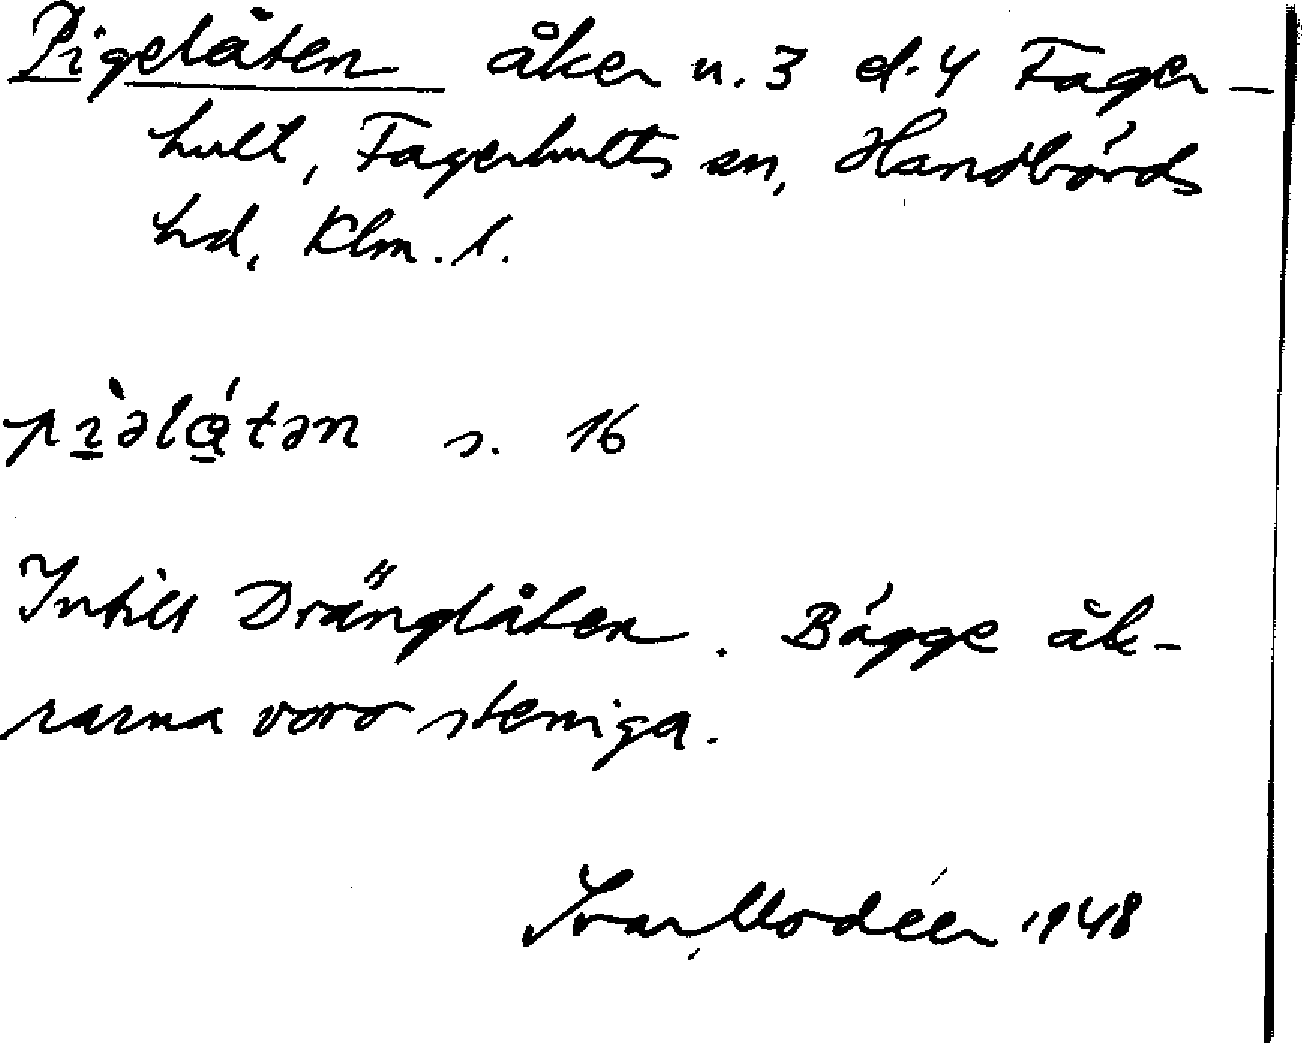 Pigelåten åker n. 3 d. 4 Fager-
hult, Fagerhults sn, Handbörds
hd, Klm. l.
pìəlåtən s. 16
Intill Dränglåten. Bägge åk-
rarna voro steniga.
Ivar Modéer 1948